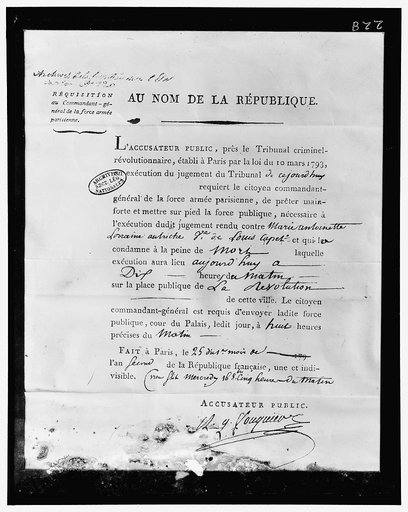 822
Archives
RÉQUISITION
au Commandant-gé-
néral de la force armée
parisienne.
AU NOM DE LA RÉPUBLIQUE.
L'ACCUSATEUR PUBLIC, près le Tribunal criminel-
révolutionnaire, établi à Paris par la loi du 10 mars 1793,
exécution du jugement du Tribunal de cejourdhuy
requiert le citoyen commandant-
général de la force armée parisienne, de prêter main-
forte et mettre sur pied la force publique, nécessaire à
l'exécution dudit jugement rendu contre Marie antoinette
Lorraine autriche Ve. de Louis Capet et qui la
condamne à la peine de Mort laquelle
exécution aura lieu aujourdhuy a
Dix heures du Matin
sur la place publique de La Révolution
de cette ville. Le citoyen
commandant-général est requis d'envoyer ladite force
publique, cour du Palais, ledit jour, à huit heures
précises du Matin
FAIT à Paris, le 25 du 1er mois de
l'an second de la République française, une et indi-
visible. mercredy 16 8bre Cinq heures du Matin
ACCUSATEUR PUBLIC.
A. q. Fouquier